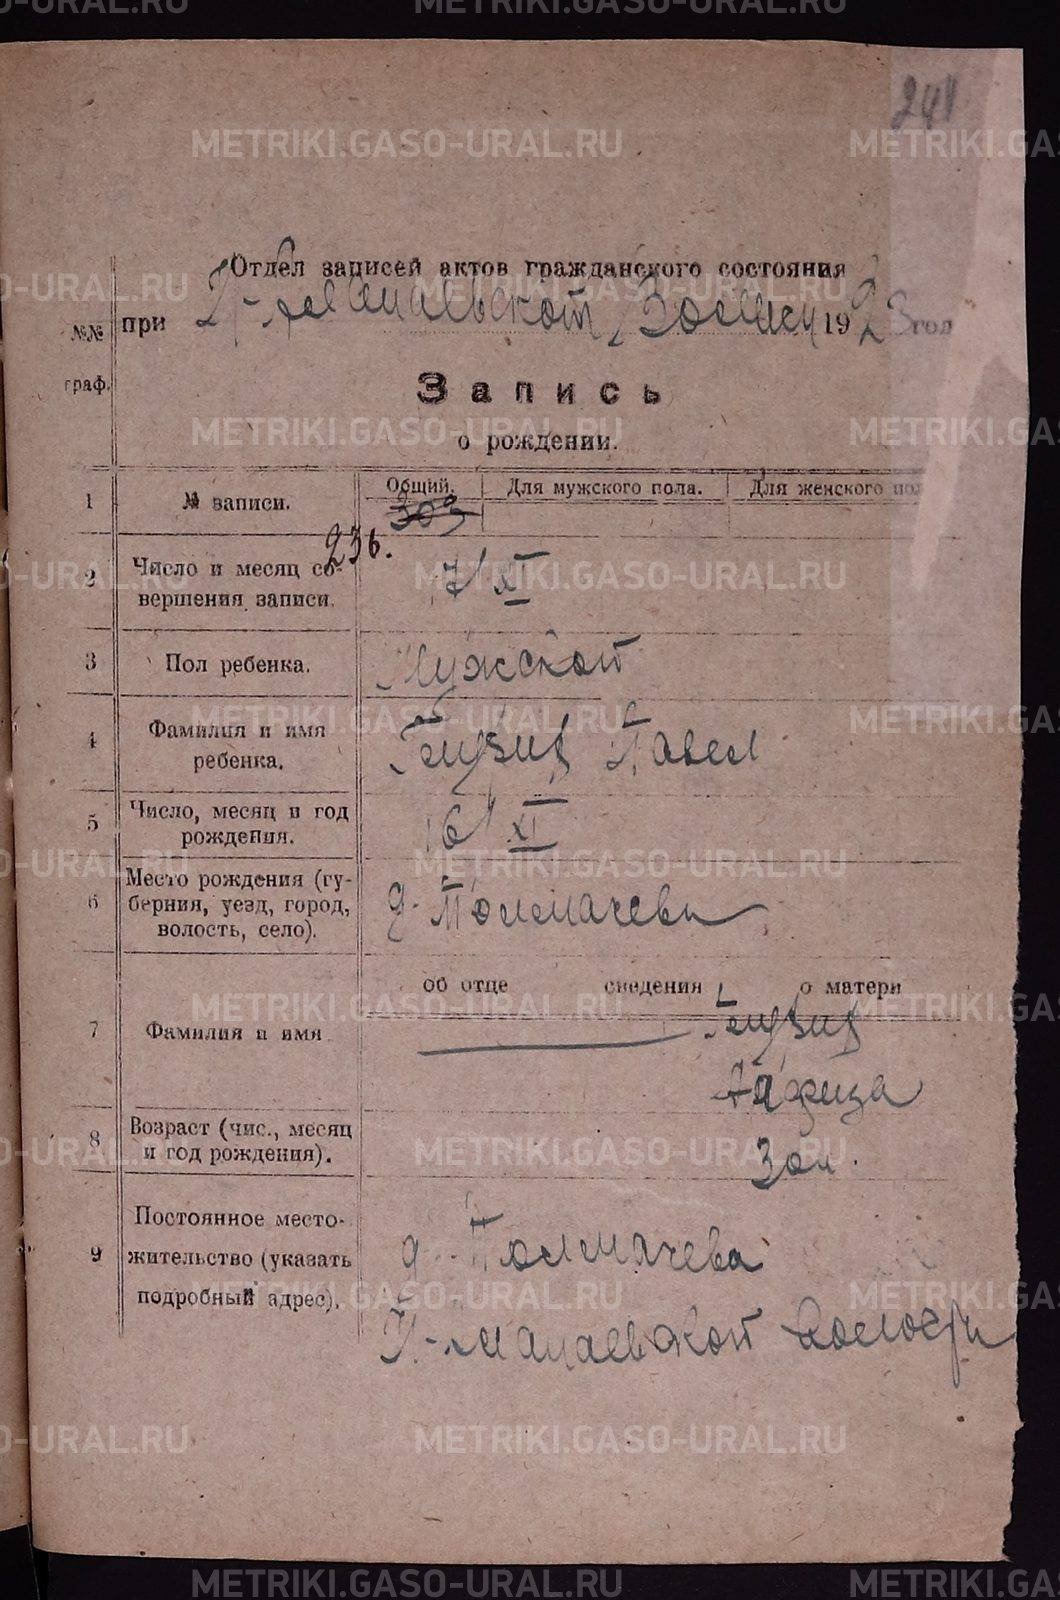 METRIKI.GASO-URAL.RU
241
Отдел записей актов гражданского состояния
при 1923 год
№№ граф.
Запись
о рождении.
1 № записи. Общий. Для мужского пола. Для женского
303
236.
2 Число и месяц совершения записи. 7/XI
3 Пол ребенка. Мужской
4 Фамилия и имя ребенка. Павел
5 Число, месяц и год рождения. 6/XI
6 Место рождения (губерния, уезд, город, волость, село). д. Толмачева
об отце сведения о матери
7 Фамилия и имя
8 Возраст (чис., месяц и год рождения). 30 л.
9 Постоянное местожительство (указать подробный адрес). д. Толмачева
волости